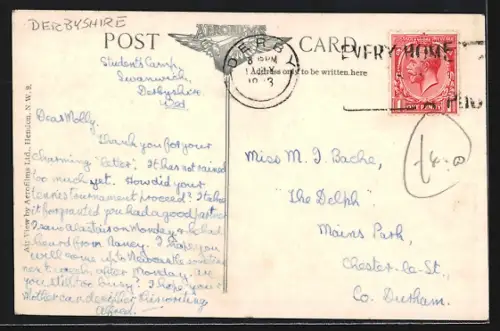 DERBYSHIRE
POST
AEROFILMS
CARD
DERBY
EVERY HOME
Address only to be written here
Students Camp,
Swanwick,
Derbyshire
Wed.
Dear Molly,
Thank you for your
charming "letter". It has not rained
too much yet. How did your
tennis tournament proceed? I take
it for granted you had a good
I saw Alastair on Monday & he had
heard from Nancy. I hope you
will come up to Newcastle sometime
next week, after Monday,
you still too busy? I hope your
Mother can decipher this writing
Alfred.
Air View by Aerofilms Ltd., Hendon, N.W.9.
Miss M. J. Bache,
"The Delph"
Mains Park,
Chester-le-St.,
Co. Durham.
£4.00